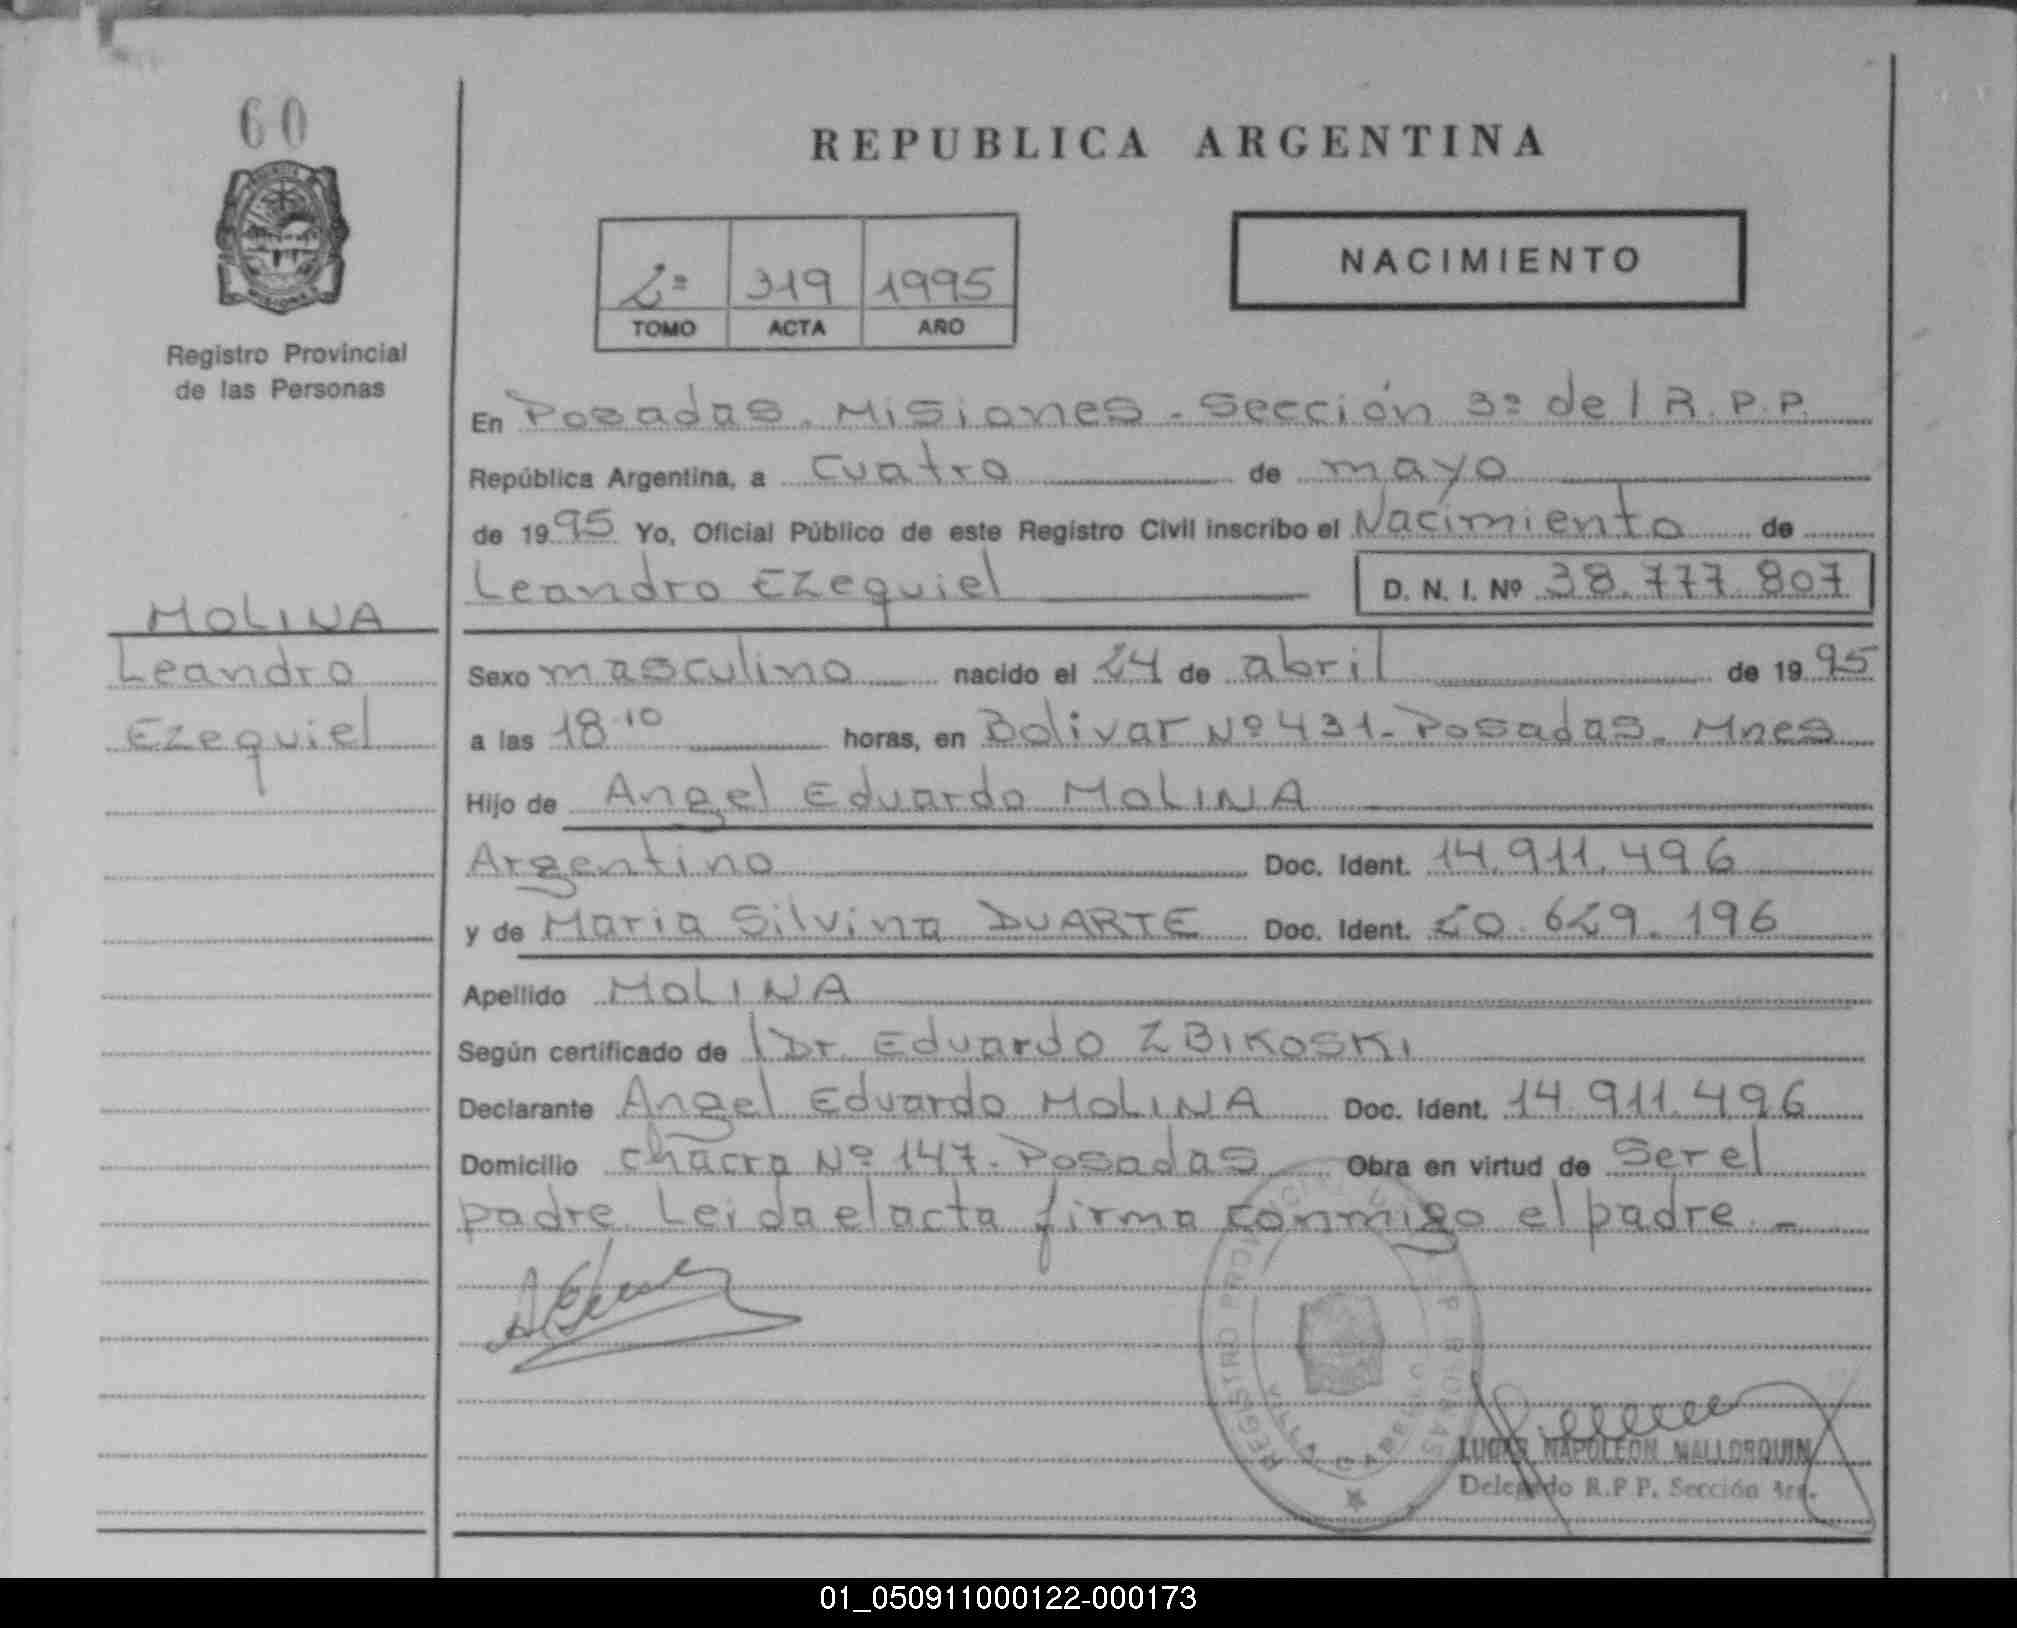 60
REPUBLICA ARGENTINA
NACIMIENTO
2º 319 1995
TOMO ACTA AÑO
Registro Provincial
de las Personas
En Posadas. Misiones - Sección 3º del R.P.P.
República Argentina, a cuatro de mayo
de 1995 Yo, Oficial Público de este Registro Civil inscribo el Nacimiento de
Leandro Ezequiel D. N. I. Nº 38.777.807
MOLINA
Leandro
Ezequiel
Sexo masculino nacido el 24 de abril de 1995
a las 18.10 horas, en Bolivar Nº 431- Posadas. Mnes
Hijo de Angel Eduardo MOLINA
Argentino Doc. Ident. 14.911.496
y de Maria Silvina DUARTE Doc. Ident. 20.629.196
Apellido MOLINA
Según certificado de l Dr. Eduardo ZBIKOSKI
Declarante Angel Eduardo MOLINA Doc. Ident. 14.911.496
Domicilio chacra Nº 147- Posadas Obra en virtud de Ser el
padre. Leida el acta firma conmigo el padre. -
REGISTRO PROVINCIAL PERSONAS
VILLA CABELLO
LUCAS NAPOLEON MALLORQUIN
Delegado R.P.P. Sección 3ra.
01_050911000122-000173